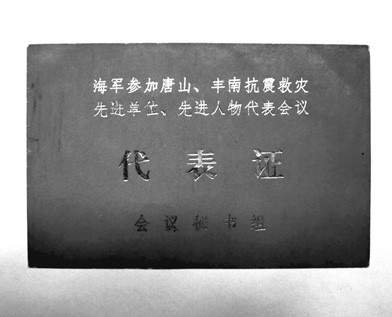 海军参加唐山、丰南抗震救灾
先进单位、先进人物代表会议
代表证
会议秘书组